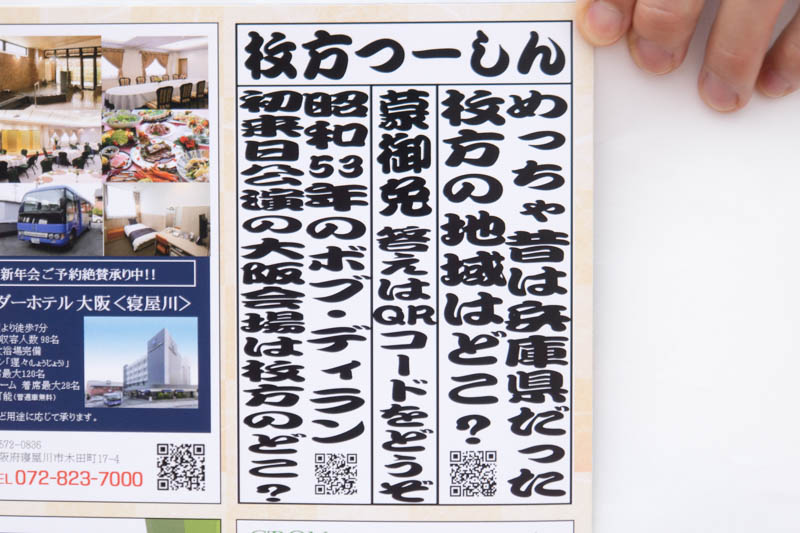 枚方つーしん
めっちゃ昔は兵庫県だった
枚方の地域はどこ?
蒙御免 答えはQRコードをどうぞ
昭和53年のボブ・ディラン
初来日公演の大阪会場は枚方のどこ?
新年会ご予約絶賛承り中!!
ダーホテル 大阪〈寝屋川〉
より徒歩7分
収容人数 98名
大浴場完備
「寔々(しょうじょう)」
席最大120名
ーム 着席最大28名
可能(普通車無料)
ど用途に応じて承ります。
572-0836
阪府寝屋川市木田町17-4
TEL 072-823-7000